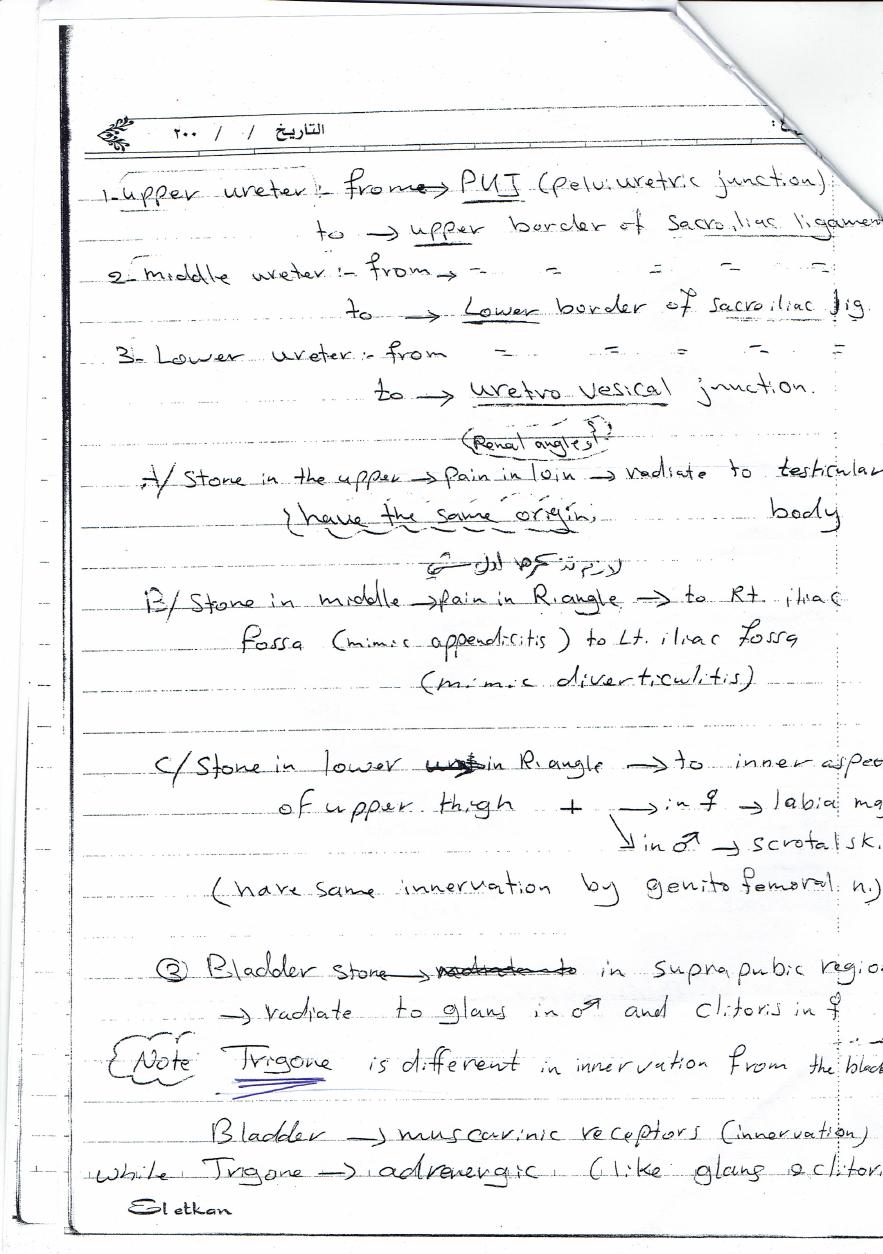 التاريخ / / ٢٠٠
1. upper ureter :- from → PUJ (pelviuretric junction)
to → upper border of sacroiliac ligamen
2- middle ureter :- from → = = = = =
to → Lower border of sacroiliac lig.
3- Lower ureter :- from = = = = =
to → uretro vesical junction.
(Renal angles)
A/ Stone in the upper → pain in loin → radiate to testicular
{have the same origin, body
لازم تذكرها اول شي
B/ Stone in middle → pain in R.angle → to Rt. iliac
fossa (mimic appendicitis) to Lt. iliac fossa
(mimic diverticulitis)
C/ Stone in lower in R.angle → to inner aspec
of upper thigh + → in ♀ → labia ma
↘ in ♂ → scrotal sk.
(have same innervation by genito femoral n.)
③ Bladder stone → in suprapubic regio
→ radiate to glans in ♂ and clitoris in ♀
{Note Trigone is different in innervation from the blad
Bladder → muscarinic receptors (innervation)
while Trigone → adrenergic (like glans & clitor
Eletkan